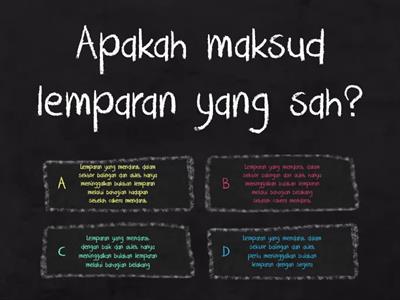 Apakah maksud
lemparan yang sah?
A
Lemparan yang mendarat dalam
sektor balingan dan atlet hanya
meninggalkan bulatan lemparan
melalui bahagian hadapan
setelah cakera mendarat.
B
Lemparan yang mendarat dalam
sektor balingan dan atlet hanya
meninggalkan bulatan lemparan
melalui bahagian belakang
setelah cakera mendarat.
C
Lemparan yang mendarat
dengan baik dan atlet hanya
meninggalkan bulatan lemparan
melalui bahagian belakang
D
Lemparan yang mendarat dalam
sektor balingan dan atlet
perlu meninggalkan bulatan
lemparan dengan segera